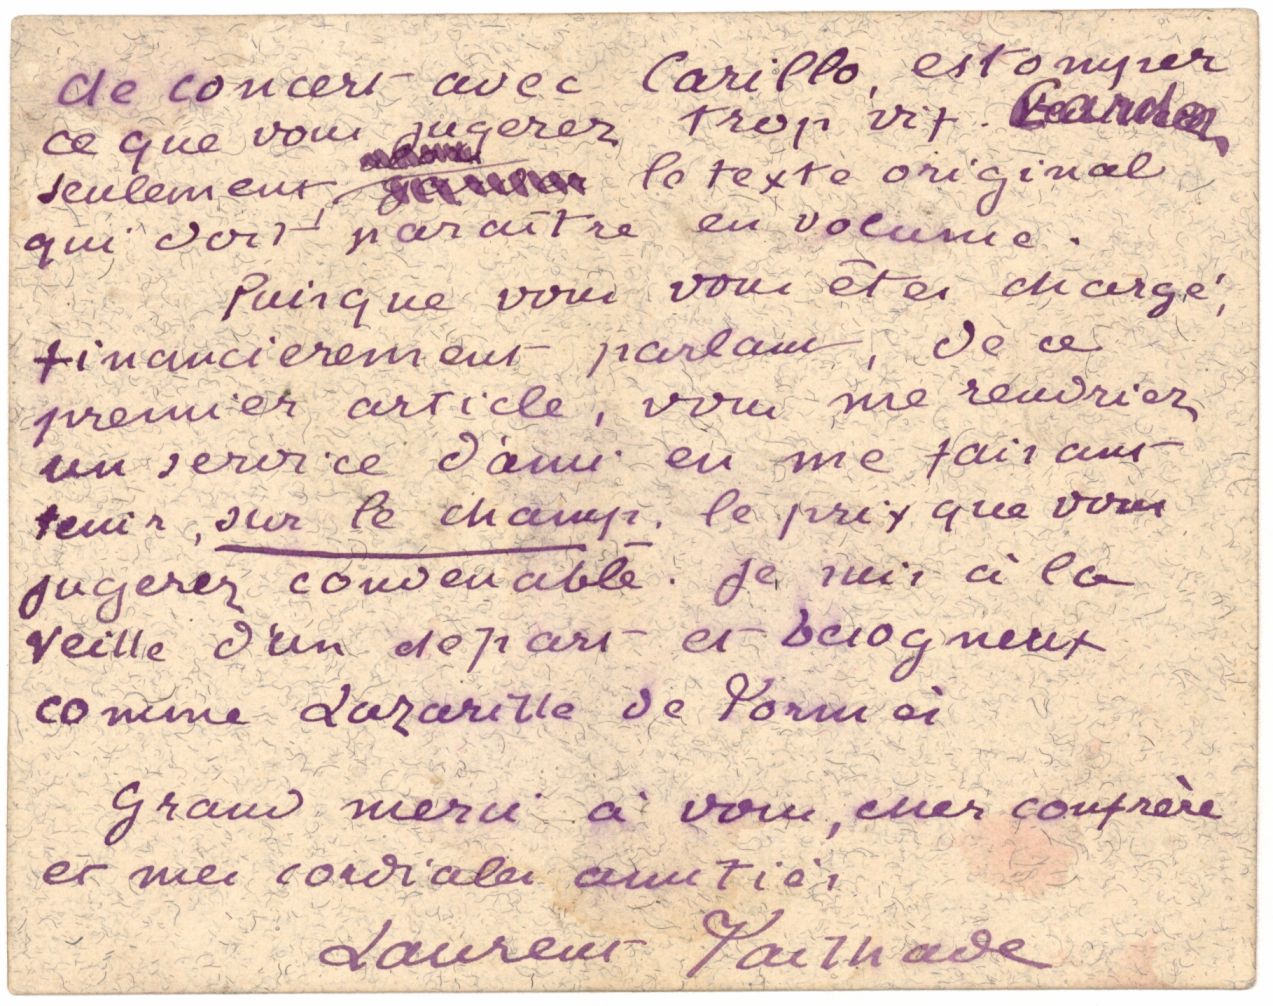 de concert avec Carillo, estomper
ce que vous jugerez trop vif. Gardez
seulement, le texte original
qui doit paraître en volume.
Puisque vous vous êtes chargé,
financièrement parlant, de ce
premier article, vous me rendriez
un service d'ami en me faisant
tenir, sur le champ, le prix que vous
jugerez convenable. Je suis à la
veille d'un départ et besogneux
comme Lazarille de Tormès
Grand merci à vous, cher confrère
et mes cordiales amitiés
Laurent Tailhade